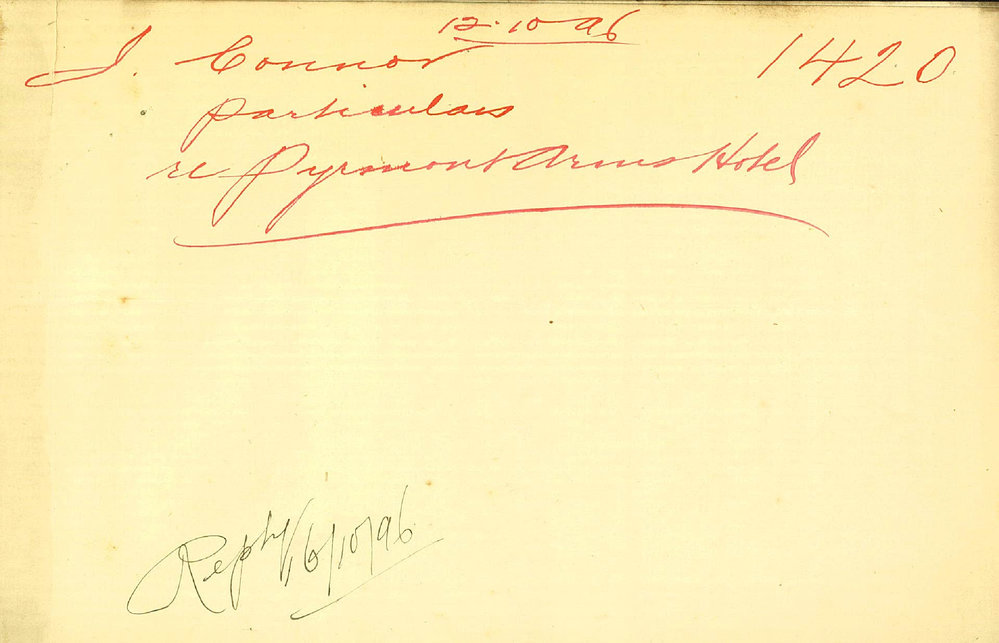 12.10.96
J. Connor 1420
particulars
re Pyrmont Arms Hotel
Reply 16/10/96